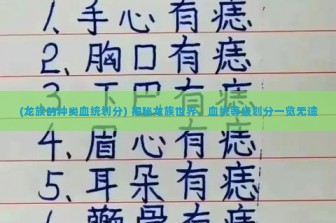 1、手心有痣
2、胸口有痣
3、下巴有痣
(龙族的种类血统划分) 揭秘龙族世界，血统等级划分一览无遗
4、眉心有痣
5、耳朵有痣